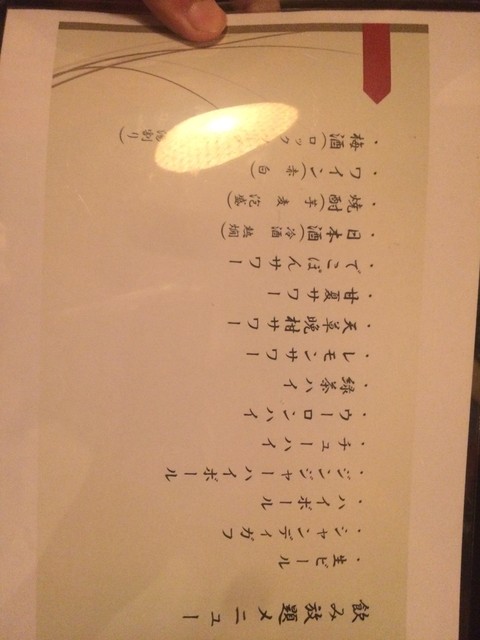 飲み放題メニュー
・生ビール
・シャンディガフ
・ハイボール
・ジンジャーハイボール
・チューハイ
・ウーロンハイ
・緑茶ハイ
・レモンサワー
・天草晩柑サワー
・甘夏サワー
・でこぽんサワー
・日本酒(冷酒 熱燗)
・焼酎(芋 麦 泡盛)
・ワイン(赤 白)
・梅酒(ロック 割り)